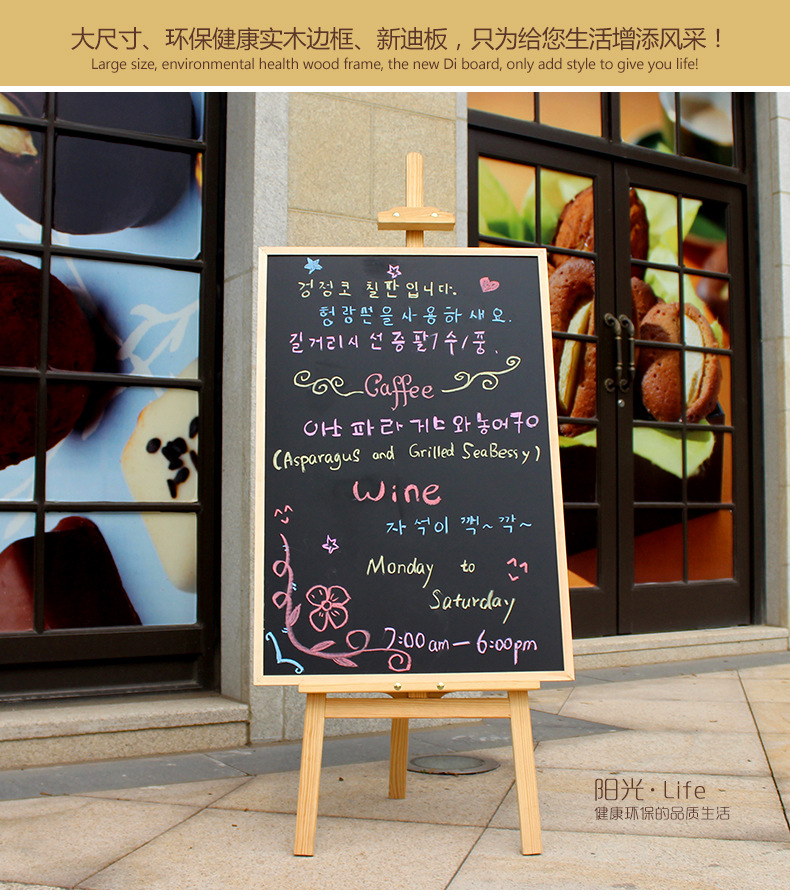 大尺寸、环保健康实木边框、新迪板，只为给您生活增添风采！
Large size, environmental health wood frame, the new Di board, only add style to give you life!
겅정코 칠판입니다.
헝랑펀을사용하새요.
길거리시선증팔
Caffee
아스파라거스와농어구이
(Asparagus and Grilled SeaBessy)
Wine
자석이 찍~깍~
Monday to
Saturday
7:00am — 6:00pm
阳光·Life
健康环保的品质生活